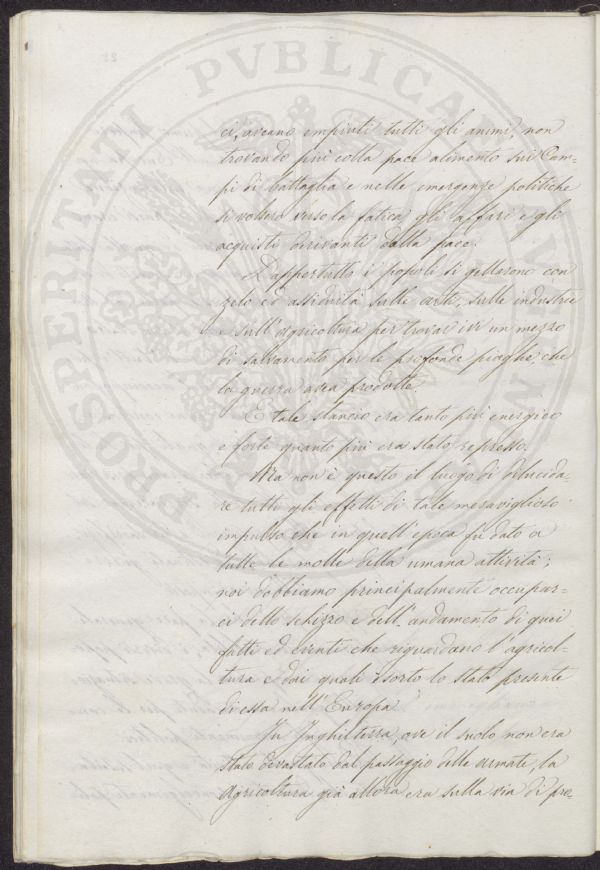 ci, aveano empiuti tutti gli animi, non
trovando più colla pace alimento sui Cam-
pi di battaglia e nelle emergenze politiche
si volsero verso la fatica, gli affari e gli
acquisti derivanti dalla pace.
Dappertutto i popoli si gettarono con
zelo ed assiduità sulle arti, sulle industrie
e sull'agricoltura per trovar ivi un mezzo
di salvamento per le profonde piaghe, che
la guerra avea prodotte.
E tale slancio era tanto più energico
e forte quanto più era stato represso.
Ma non è questo il luogo di dilucida-
re tutti gli effetti di tale meraviglioso
impulso che in quell'epoca fu dato a
tutte le molle della umana attività;
noi dobbiamo principalmente occupar-
ci dello schizzo e dell'andamento di quei
fatti ed eventi che riguardano l'agricol-
tura e dai quali è sorto lo stato presente
di essa nell'Europa
In Inghilterra, ove il suolo non era
stato devastato dal passaggio delle armate, la
Agricoltura già allora era sulla via di pro-
PROSPERITATI PVBLICAE